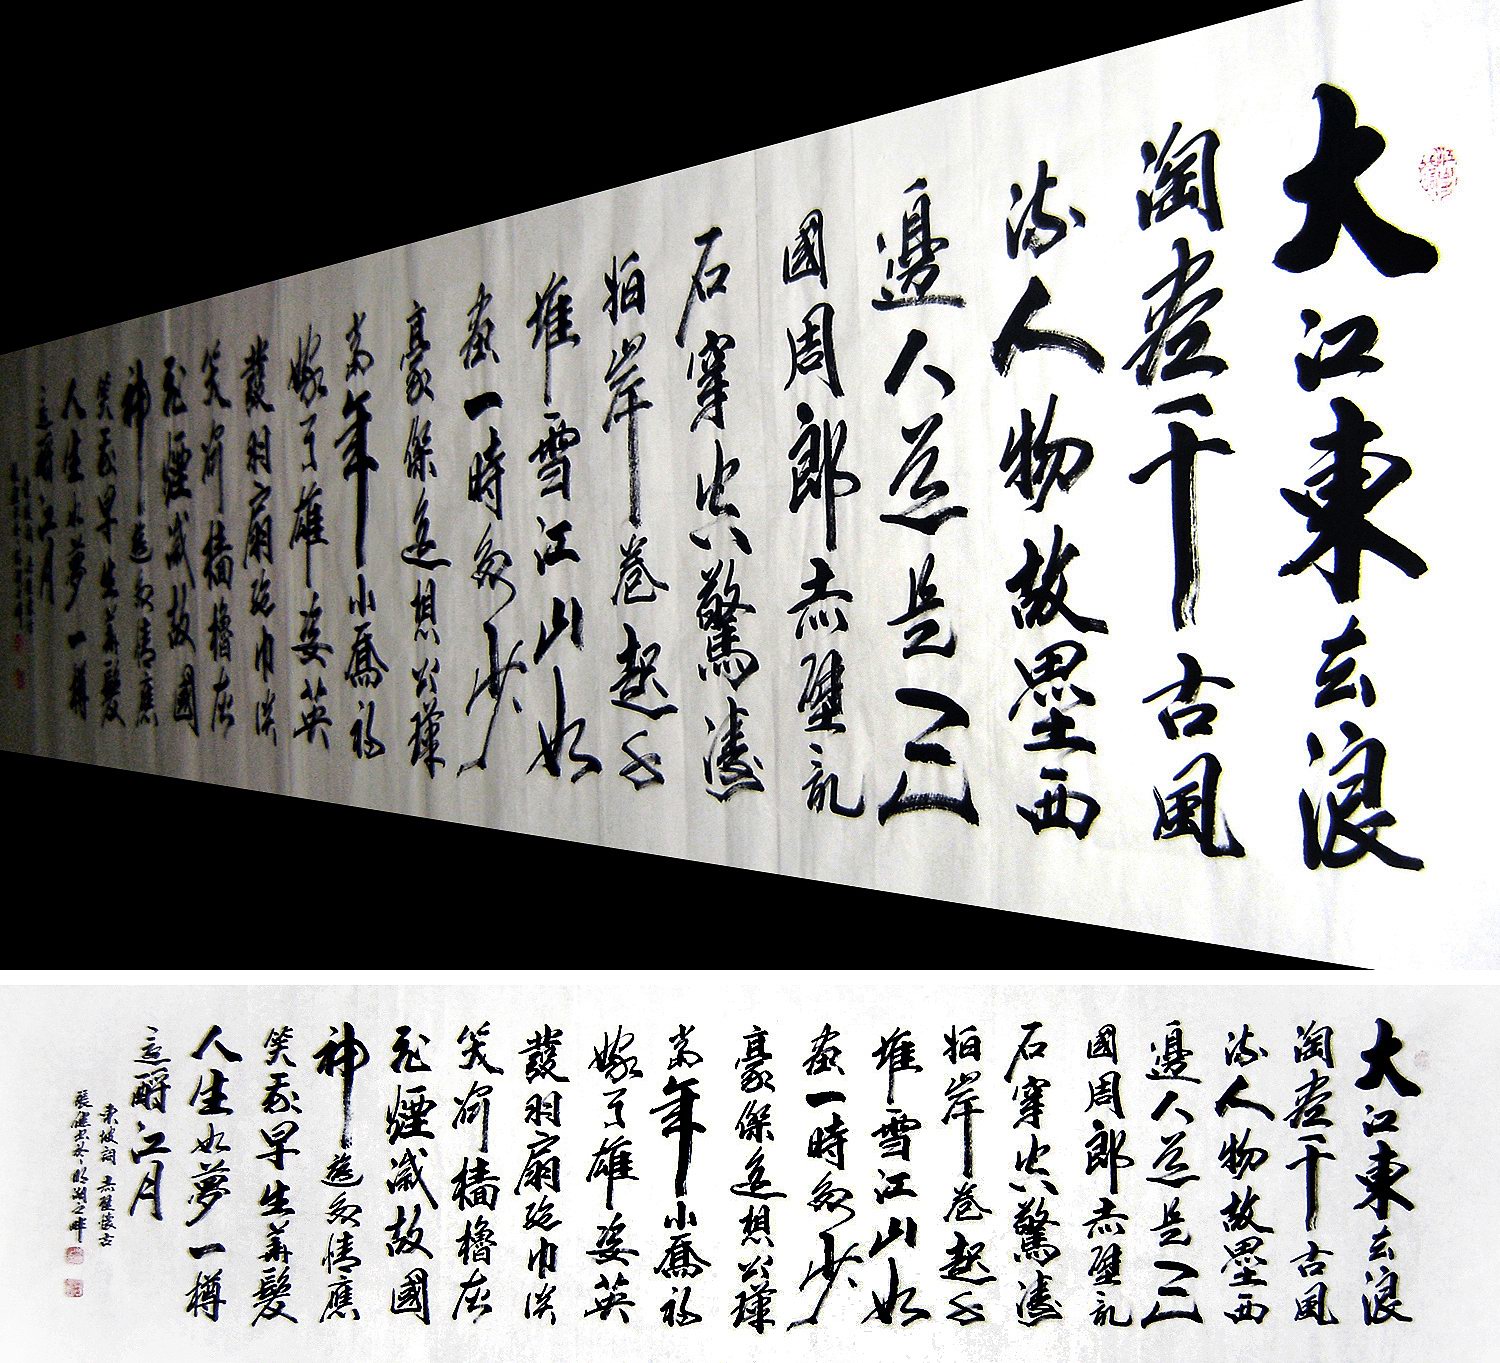 大江東去浪
淘盡千古風
流人物故壘西
邊人道是三
國周郎赤壁亂
石穿空驚濤
拍岸卷起千
堆雪江山如
畫一時多少
豪傑遙想公瑾
當年小喬初
嫁了雄姿英
發羽扇綸巾談
笑間檣櫓灰
飛煙滅故國
神遊多情應
笑我早生華髮
人生如夢一樽
還酹江月
大江東去浪
淘盡千古風
流人物故壘西
邊人道是三
國周郎赤壁亂
石穿空驚濤
拍岸卷起千
堆雪江山如
畫一時多少
豪傑遙想公瑾
當年小喬初
嫁了雄姿英
發羽扇綸巾談
笑間檣櫓灰
飛煙滅故國
神遊多情應
笑我早生華髮
人生如夢一樽
還酹江月
東坡詞 赤壁懷古
張健書於明湖之畔